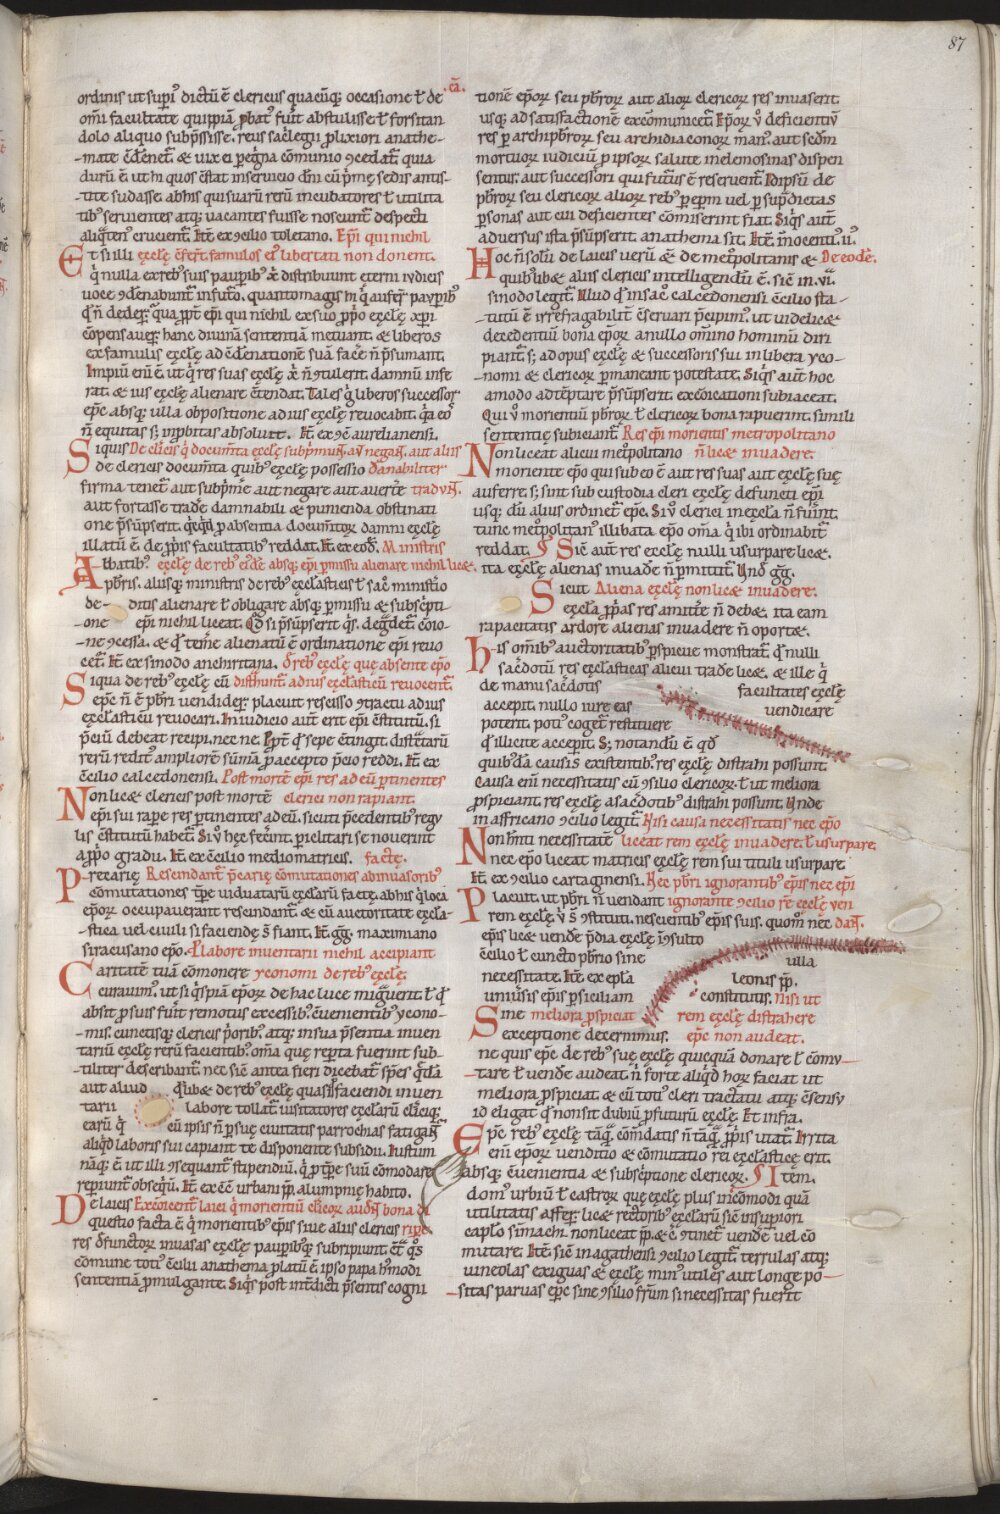 87
ordinis ut sup̄i᷒ dictū ē clericus quacūq; occasione ł de cā.
om̄i facultate quippiā ꝓbat᷒ fuīt abstulisse ł forsitan
dolo aliquo subp̄ssisse. reus sac̄legii ꝓlixiori anathe-
mate c̄dēnet᷑. & uix ei ꝑegͥna cōmunio ꝯcedat᷑ quia
durū ē ut hi quos c̄stat in seruicio dn̄i cū p̄mę sedis antis-
tite sudasse. ab his qui suarū rerū incubatores ł utilita
tib᷒ seruientes atq; uacantes fuisse noscunt᷑ despecti
aliq̄ten᷒ crucient᷑. Itē ex ꝯcilio toletano. Ep̄i qui nichil
Et si illi ęcclę c̄fer̄t. famulos ei᷒ libertati non donent.
q̄ nulla ex reb᷒ suis pauꝑib᷒ distribuunt ęterni iudicis
uoce ꝯdēnabunt᷑ in futuro. quanto magis hi q̇ aufer̄t pauꝑib᷒
qđ n̄ deder̄t. qua ꝓpt̄ ep̄i qui nichil ex suo ꝓp̄o ęcclę xp̄i
cōpensauer̄t hanc diuinā sententiā metuant. & liberos
ex famulis ęcclę ad c̄dēnationē suā facē n̄ p̄sumant.
Impiū eni ē. ut q̇ res suas ęcclę n̄ ꝯtulerit. damnū infe
rat. & ius ęcclę alienare c̄tendat. Tales q̇ liberos successor
ep̄c absq; ulla obpositione ad ius ęcclę reuocabit. q̇a eos
n̄ equitas s; inꝓbitas absoluit. Itē. ex ꝯc̄ aurelianensi.
Siquis De cl̄icis q̇ docum̄ta ęcclę subp̄mun̄t. aut negan̄t. aut aliis
de clericis docum̄ta quib᷒ ęcclę possessio dānabiliter
firma tenet᷑ aut subp̄mē aut negare aut auerte tradun̄t.
aut fortasse tradē damnabili & punienda obstinati
one p̄sūpserit. q̇cqd ꝑ absentia documtoꝝ damni ęcclę
illatū ē. de ꝓp̄iis facultatib᷒ reddat. Itē ex eod̄. Ministris
Abbatib᷒ ęcclę de reb᷒ ei᷒dē absq; ep̄i ꝑmissu alienare nichil licet.
p̄bris. aliisq; ministris de reb᷒ ęcclasticis ł sac̄ ministio
de- ditis alienare ł obligare absq; ꝑmissu & subsc̄pti-
one ep̄i nichil liceat. Qđ si p̄sūpserit q̇s. degͣdet᷑ cōio-
ne ꝯcessa. & qđ tem̄e alienatū ē ordinatione ep̄i reuo
cet᷑. Itē ex sinodo anchiritana. De reb᷒ ęcclę que absente ep̄o
Si qua de reb᷒ ęcclę cū distͣhunt᷑. ad ius ęcclasticū reuocent᷑.
ep̄c n̄ ē p̄bri uendider̄t. placuit rescisso ꝯtractu ad ius
ęcclasticū reuocari. In iudicio aut̄ erit ep̄i c̄stitutū. si
p̄ciū debeat recipi. nec ne. Ꝓpt̄ qđ sepe c̄tingit distͣctarū
rerū reditꝰ ampliorē sūmā ꝓ accepto p̄cio reddi. Itē ex
c̄cilio calcedonensi. Post mortē ep̄i res ad eū ꝑtinentes
Non licet clericis post mortē clerici non rapiant.
ep̄i sui rapē res ꝑtinentes ad eū. sicuti p̄cedentib᷒ regu
lis c̄stitutū habet᷑. Si ū hęc fec̄int. ꝑiclitari se nouerint
a ꝓp̄o gradu. Itē. ex c̄cilio mediomatricis. factę.
Precarię Rescindant᷑ p̄carię cōmutationes ab inuasoribus
cōmutationes tp̄e uiduatarū ęcclarū factę. ab his q̇ loca
ep̄oꝝ occupauerant rescindant᷑. & cū auctoritate ęccla-
stica uel ciuili si faciendę s̄ fiant. Itē. gg̃. maximiano
siracusano ep̄o. Labore inuentarii nichil accipiant
Caritatē tuā cōmonere yconomi de reb᷒ ęcclę.
curauim᷒. ut si q̇spiā ep̄oꝝ de hac luce migͣuerit. ł qđ
absit ꝓ suis fuīt remotus excessib᷒. c̄uenientib᷒ ycono-
mis. cunctisq; clericis p̄orib᷒. atq; in sua p̄sentia inuen
tariū ęcclę rerū facientib᷒. om̄a quę reꝑta fuerint sub-
tiliter describant᷑. nec sic̄ antea fieri dicebat᷑ sp̄es q̄dā
aut aliud qͣlibet de reb᷒ ęcclę quasi ꝓ faciendi inuen
tarii labore tollat᷑. uisitatores ęcclarū cl̄iciq;
earū q̇ cū ipsis n̄ ꝑ suę ciuitatis parrochias fatigan̄t
aliqd laboris sui capiant te disponente subsidii. Iustum
nāq; ē ut illi ꝯsequant᷑ stipendiū. q̇ ꝓ tp̄e suū cōmodare
reꝑiunt᷑ obseq̇ū. Itē. ex c̄c̄ urbani pp̄. alumpmię habito.
De laicis Excōicent᷑ laici q̇ morientiū cl̄icoꝝ aut ep̄oꝝ bona di
questio facta ē q̇ morientib᷒ ep̄is siue aliis clericis ripe
res defunctoꝝ inuasas ęcclę pauꝑibq; subripiunt. c̄tͣ q̇s
cōmune toti᷒ c̄cilii anathema ꝓlatū ē. ipso papa h᷒modi
sententiā ꝓmulgante. Siq̇s post int̄dicti p̄sentis cogni
tionē ep̄oꝝ seu p̄broꝝ aut alioꝝ clericoꝝ res inuaserit.
usq; ad satisfactionē excōmunicet᷑. Ep̄oꝝ ū deficientiū
res ꝑ archip̄broꝝ seu archidiaconoꝝ man᷒. aut scdm
mortuoꝝ iudiciū ꝓ ipsoꝝ salute in elemosinas dispen
sentur. aut successori qui futur᷒ ē reseruent᷑. Id ipsū de
p̄broꝝ seu clericoꝝ alioꝝ reb᷒ ꝑ ep̄m uel ꝑ sup̄dictas
ꝑsonas aut cui deficientes cōmiserint fiat. Siq̇s aut̄
aduersus ista p̄sūpserit. anathema sit. Itē. Inocenti᷒. ii᷒.
Hoc n̄ solū de laicis uerū & de met̄politanis & De eodē.
quib᷒libet aliis clericis intelligendū ē. sic̄ in .vi.
sinodo legit᷑. Illud qđ in sac̄ calcedonensi c̄cilio sta-
tutū ē irrefragabilit̄ c̄seruari p̄cipim᷒. ut uidelicet
decedentiū bona ep̄oꝝ a nullo om̄ino hominū diri
piant᷑. s; ad opus ęcclę & successoris sui in libera yco-
nomi & clericoꝝ ꝑmaneant potestate. Siq̇s aut̄ hoc
amodo adtēptare p̄sūpserit. excōicationi subiaceat.
Qui ū morientiū p̄broꝝ ł clericoꝝ bona rapuerint. simili
sententię subiciant᷑. Res ep̄i morientis metropolitano
Non liceat alicui met̄politano n̄ licet inuadere.
moriente ep̄o qui sub eo ē aut res suas aut ęcclę suę
auferre. s; sint sub custodia cleri ęcclę defuncti ep̄i
usq; dū alius ordinet᷑ ep̄c. Si ū clerici in ęccla n̄ fuīnt.
tunc met̄politan᷒ illibata ep̄o om̄a q̇ ibi ordinabit᷑
reddat. ¶ Sic̄ aut̄ res ęcclę nulli usurpare licet.
ita ęcclę alienas inuadē n̄ ꝑmittit᷑. Unde gg̃.
Sicut Aliena ęcclę non licet inuadere.
ęccla ꝓp̄as res amittē n̄ debet. ita eam
rapacitatis ardore alienas inuadere n̄ oportet.
His om̄ib᷒ auctoritatib᷒ ꝑspicue monstrat᷑. qđ nulli
sac̄dotū res ęcclasticas alicui tradē licet. & ille q̇
de manu sac̄dotis facultates ęcclę
accepit. nullo iure eas uendicare
poterit. poti᷒ coget᷑ restituere
qđ illicite accepit. S; notandū ē qđ
quib᷒dā causis existentib᷒ res ęcclę distrahi possunt.
Causa eni necessitatis cū ꝯsilio clericoꝝ. ł ut meliora
ꝓspiciant. res ęcclę a sac̄dotib᷒ distrahi possunt. Unde
in affricano ꝯcilio legit᷑. Nisi causa necessitatis nec ep̄o
Non hn̄ti necessitatē liceat rem ęcclę inuadere. ł usurpare.
nec ep̄o liceat matricis ęcclę rem sui tituli usurpare.
Itē. ex ꝯcilio cartaginensi. Nec p̄bri ignorantib᷒ ep̄is nec ep̄i
Placuit. ut p̄bri n̄ uendant ignorante ꝯcilio rē ęcclę uen
rem ęcclę. ū s̄ ꝯstituti. nescientib᷒ ep̄is suis. quom᷒ nec dan̄t.
ep̄is licet uendē p̄dia ęcclę ī ꝯsulto
c̄cilio ł cuncto p̄brio sine ulla
necessitate. Itē. ex ep̄la leonis pp̄.
uniūsis ep̄is ꝑ siciliam constitutis. nisi ut
Sine meliora ꝓspiciat rem ęcclę distrahere
exceptione decernimus. ep̄c non audeat.
ne quis ep̄c de reb᷒ suę ęcclę quicquā donare ł cōmu-
tare ł uendē audeat. n̄ forte aliqđ hoꝝ faciat ut
meliora ꝓspiciat & cū toti᷒ cleri tractatu atq; c̄sensu
id eligat qđ non sit dubiū ꝓfuturū ęcclę. Et infra.
Ep̄c reb᷒ ęcclę tāq; cōm̄datis n̄ tāq; ꝓp̄iis utat᷑. Irrita
eni ep̄oꝝ uenditio & cōmutatio rei ęcclasticę erit.
absq; c̄uenientia & subsc̄ptione clericoꝝ. ¶ Item.
dom᷒ urbiū ł castroꝝ que ęcclę plus incōmodi quā
utilitatis affer̄t. licet rectorib᷒ ęcclarū sic̄ in suꝑiori
cap̄lo simachi. non liceat pp̄. & c̄ ꝯtinet᷑ uendē uel cō
mutare. Itē. sic̄ in agathensi ꝯcilio legit᷑. terrulas atq;
uineolas exiguas & ęcclę min᷒ utiles aut longe po-
sitas paruas ep̄c sine ꝯsilio fr̄um si necessitas fuerit